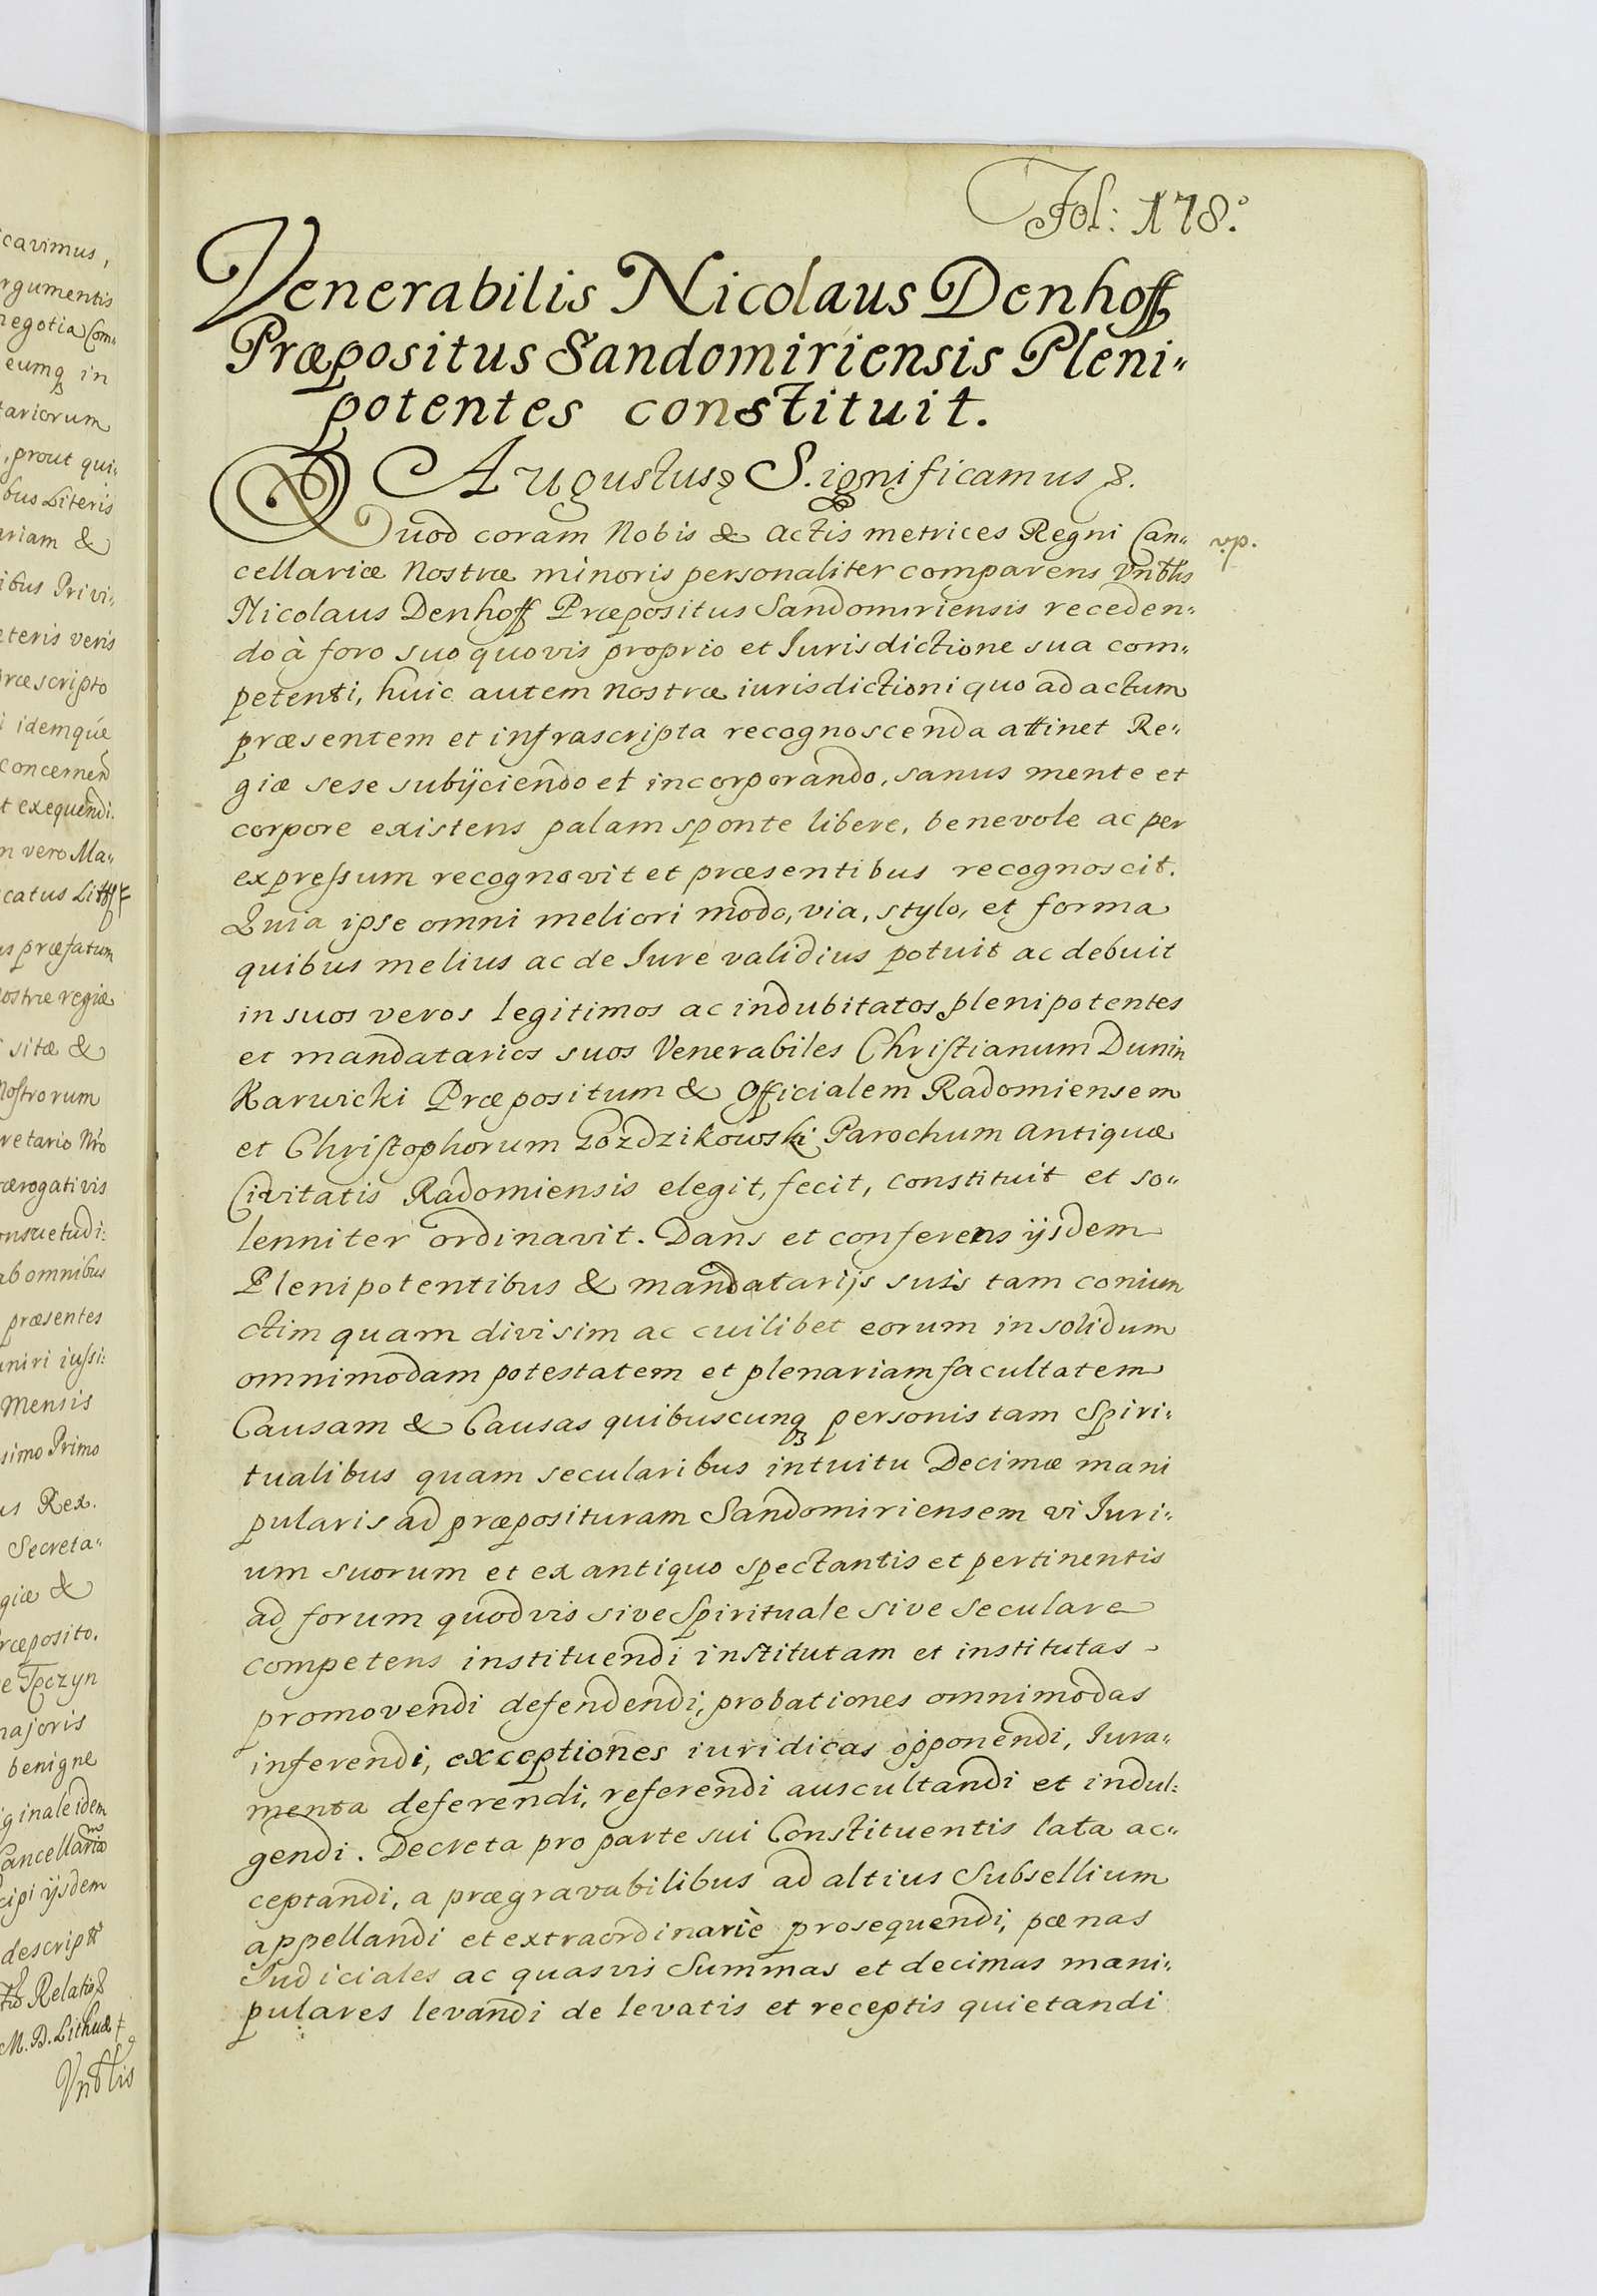 Fol: 178.
Venerabilis Nicolaus Denhoff
Præpositus Sandomiriensis Pleni„
potentes constituit.
Augustus S.ignificamus &.
Quod coram Nobis & actis metrices Regni Can„
vp.
cellariæ Nostræ minoris personaliter comparens Vnblis
Nicolaus Denhoff Præpositus Sandomiriensis receden„
do à foro suo quovis proprio et Iurisdictione sua com„
petenti, huic autem nostræ iurisdictioni quo ad actum
præsentem et infrascripta recognoscenda attinet Re„
giæ sese subijciendo et incorporando, sanus mente et
corpore existens palam sponte libere, benevole ac per
expressum recognovit et præsentibus recognoscit.
Quia ipse omni meliori modo, via, stylo, et forma
quibus melius ac de Iure validius potuit ac debuit
in suos veros legitimos ac indubitatos plenipotentes
et mandatarios suos Venerabiles Christianum Dunin
Karwicki Præpositum & Officialem Radomiensem
et Christophorum Gozdzikowski Parochum antiquæ
Civitatis Radomiensis elegit, fecit, constituit et so„
lenniter ordinavit. Dans et conferens ijsdem
Plenipotentibus & mandatarijs suis tam coniun
ctim quam divisim ac cuilibet eorum in solidum
omnimodam potestatem et plenariam facultatem
Causam & Causas quibuscunq₃ personis tam Spiri„
tualibus quam secularibus intuitu Decimæ mani
pularis ad præposituram Sandomiriensem vi Iuri„
um suorum et ex antiquo spectantis et pertinentis
ad forum quodvis sive Spirituale sive seculare
competens instituendi institutam et institutas
promovendi defendendi, probationes omnimodas
inferendi, exceptiones iuridicas opponendi, Iura„
menta deferendi, referendi auscultandi et indul„
gendi. Decreta pro parte sui Constituentis lata ac„
ceptandi, a prægravabilibus ad altius Subsellium
appellandi et extraordinariè prosequendi, pœnas
Iudiciales ac quasvis Summas et decimas mani„
pulares levandi de levatis et receptis quietandi